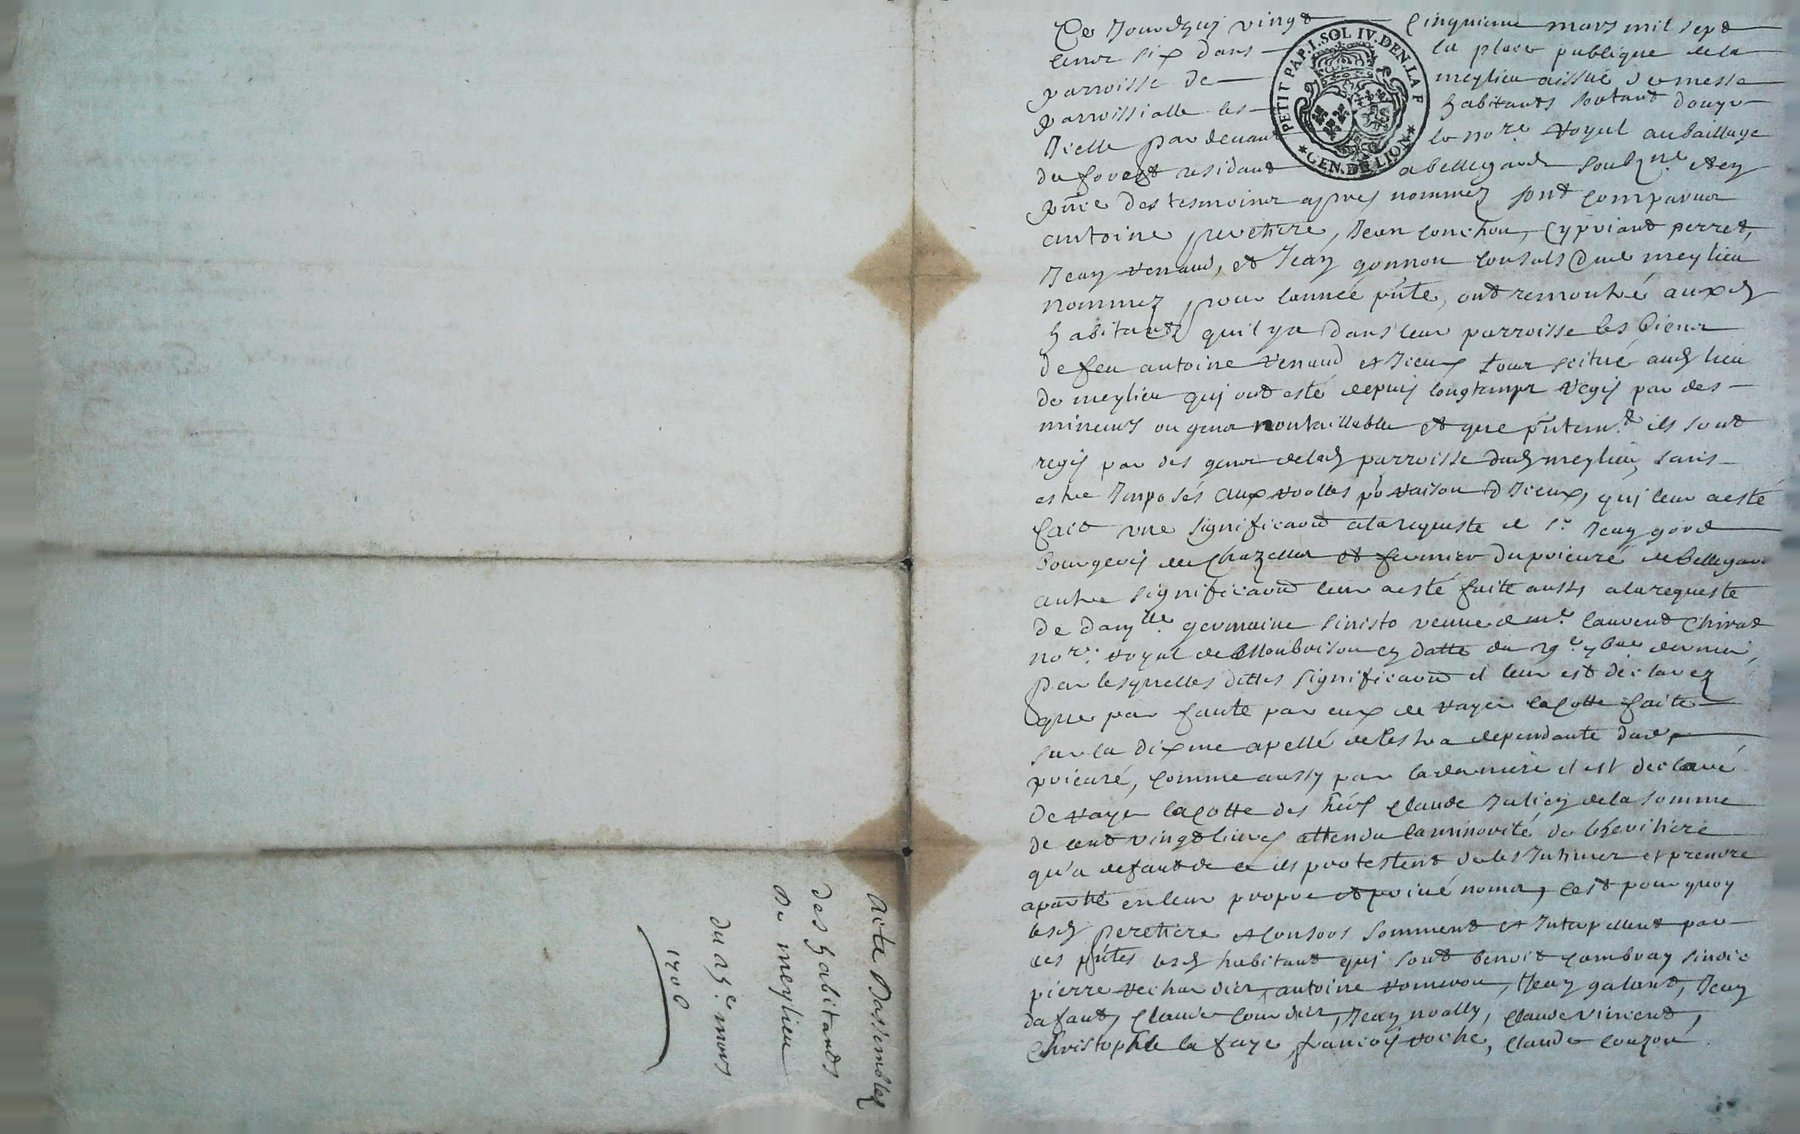 Ce Jourdhuy vingt cinquieme mars mil sept
cens six dans la place publique de la
parroisse de meylieu a issüe de messe
parroissialle les habitants sortant douyr
Jcelle pardevant le no.re royal au bailliage
de forest residant a bellegarde soubz.né et en
pñce des tesmoins apres nommez sont comparus
antoine peretiere, Jean conchon, cypriant perret,
Jean renaud, et Jean gonnon consuls dud meylieu
nommez pour lannée pñte, ont remontré auxd
habitants quil y a dans leur parroisse les biens
de feu antoine renaud et Jceux pour scitué aud lieu
de meylieu qui ont esté depuis longtemps regis par des
mineurs ou gens non taillable et que pñtem.t ils sont
regis par des gens de lad parroisse dud meylieu, sans
estre Jmposés aux roolles po raison dJceux, qui leur a esté
fait une signification a la requeste de s.r Jean gord
bourgeois de Chazelles et fermier du prieuré de bellegarde
autre signification leur a esté faite aussy a la requeste
de dam.lle germaine sinisto veuve de m.e laurent Chirat
no.re royal de Monboison en datte du 29.e 7bre dernier,
par lesquelles dittes signification il leur est declarez
que par faute par eux de rayer la cotte faite
sur la dixme apellé de lestra dependante dud
prieuré, comme aussy par la derniere il est declaré
de rayer la cotte des hers Claude Julien de la somme
de cent vingt livres attendu la minorité de lheritiere
qu'a defaut de ce ils protestent de les Jntimer et prendre
a partie en leur propre et privé noms, cest pourquoy
lesd peretiere et consors somment et Jnterpellent par
ces pñtes lesd habitant qui sont benoit combray sindic
pierre rechardier, antoine romeron, Jean galand, Jean
dafaut, Claude courdier, Jean noally, claude vincent,
Christophle la faye, francois roche, claude couzon
Acte Dassemblez
des habitants
de meylieu
du 25.e mars
1706
PETIT PAP. I. SOL IV. DEN. LA F
GEN. DE LION